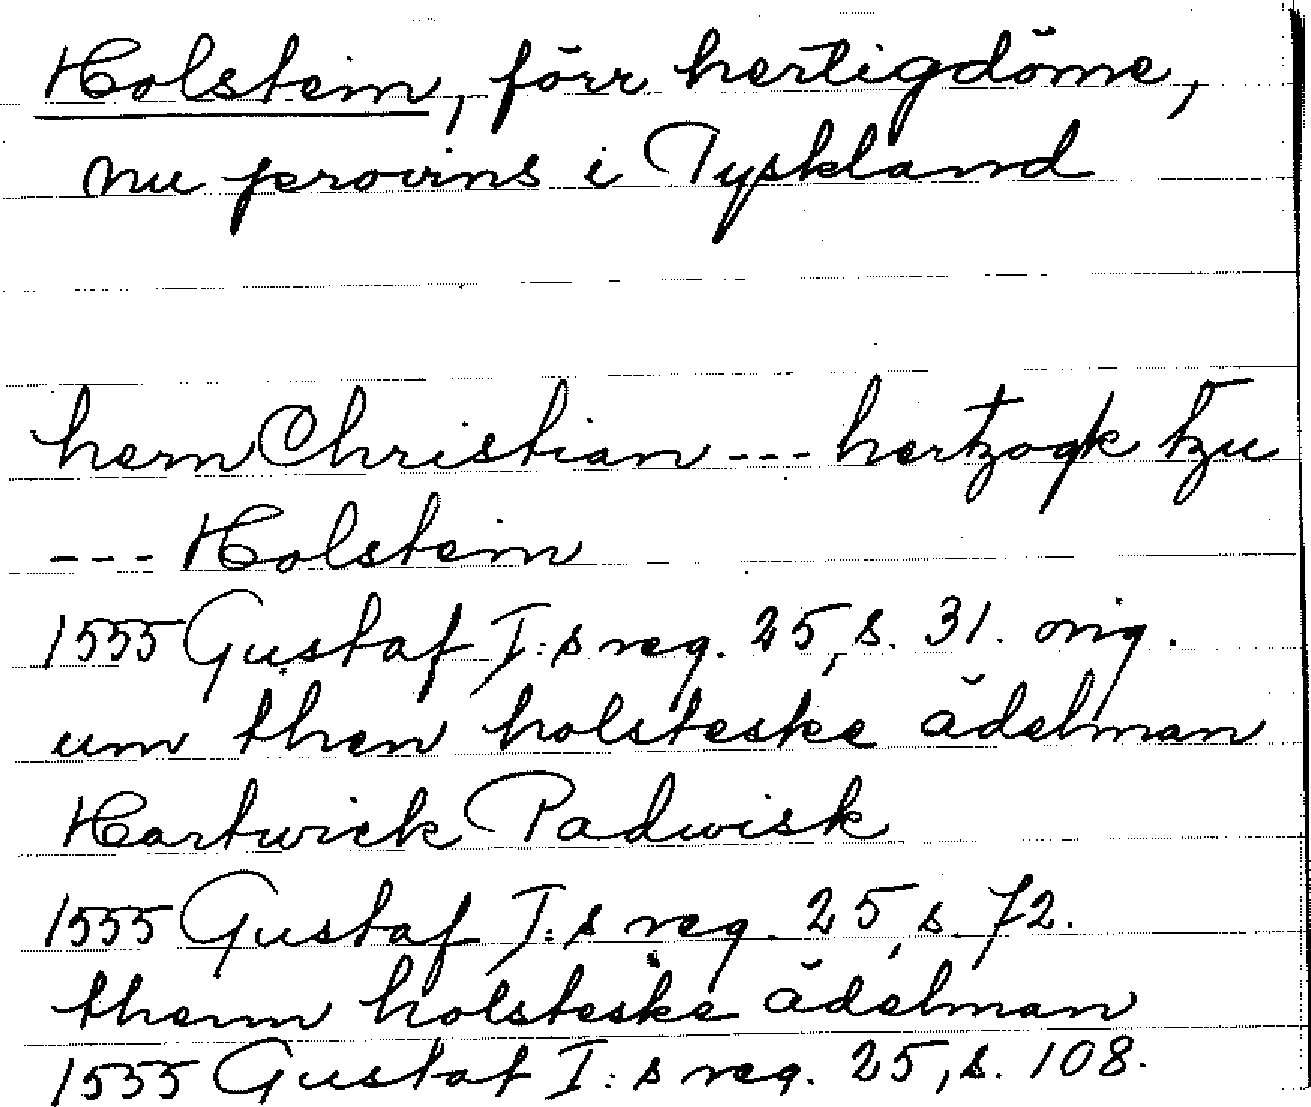 Holstein, förr hertigdöme,
nu provins i Tyskland
hern Christian --- hertzogk tzu
--- Holstein
1555 Gustaf I:s reg. 25, s. 31. orig.
um then holsteske ädelman
Hartwick Padwisk
1555 Gustaf I:s reg. 25, s. 72.
thenn holsteske ädelman
1555 Gustaf I:s reg. 25, s. 108.